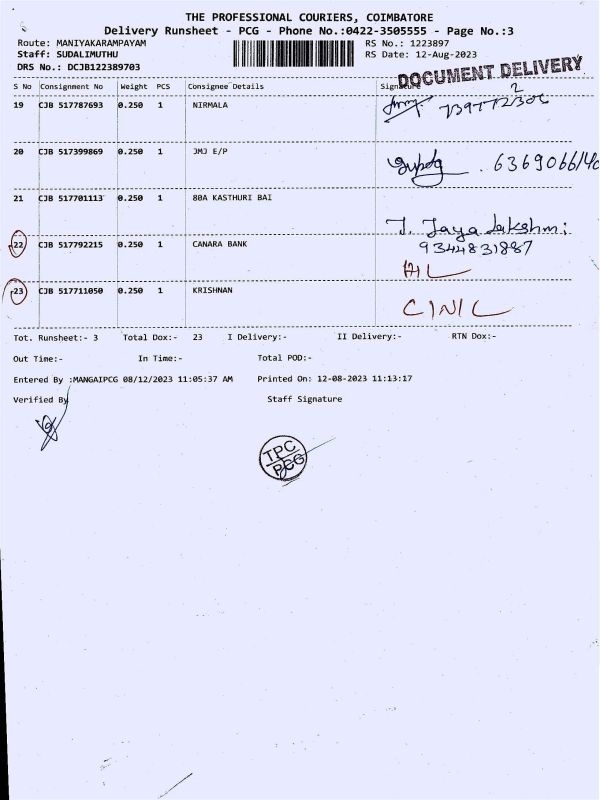 THE PROFESSIONAL COURIERS, COIMBATORE
Delivery Runsheet - PCG - Phone No.:0422-3505555 - Page No.:3
Route: MANIYAKARAMPAYAM RS No.: 1223897
Staff: SUDALIMUTHU RS Date: 12-Aug-2023
DRS No.: DCJB122389703
DOCUMENT DELIVERY
S No Consignment No Weight PCS Consignee Details Signature
19 CJB 517787693 0.250 1 NIRMALA
20 CJB 517399869 0.250 1 JMJ E/P
21 CJB 517701113 0.250 1 80A KASTHURI BAI
J. Jaya Lakshmi
22 CJB 517792215 0.250 1 CANARA BANK 9344831887
23 CJB 517711050 0.250 1 KRISHNAN
Tot. Runsheet:- 3 Total Dox:- 23 I Delivery:- II Delivery:- RTN Dox:-
Out Time:- In Time:- Total POD:-
Entered By :MANGAIPCG 08/12/2023 11:05:37 AM Printed On: 12-08-2023 11:13:17
Verified By Staff Signature
TPC
PCG